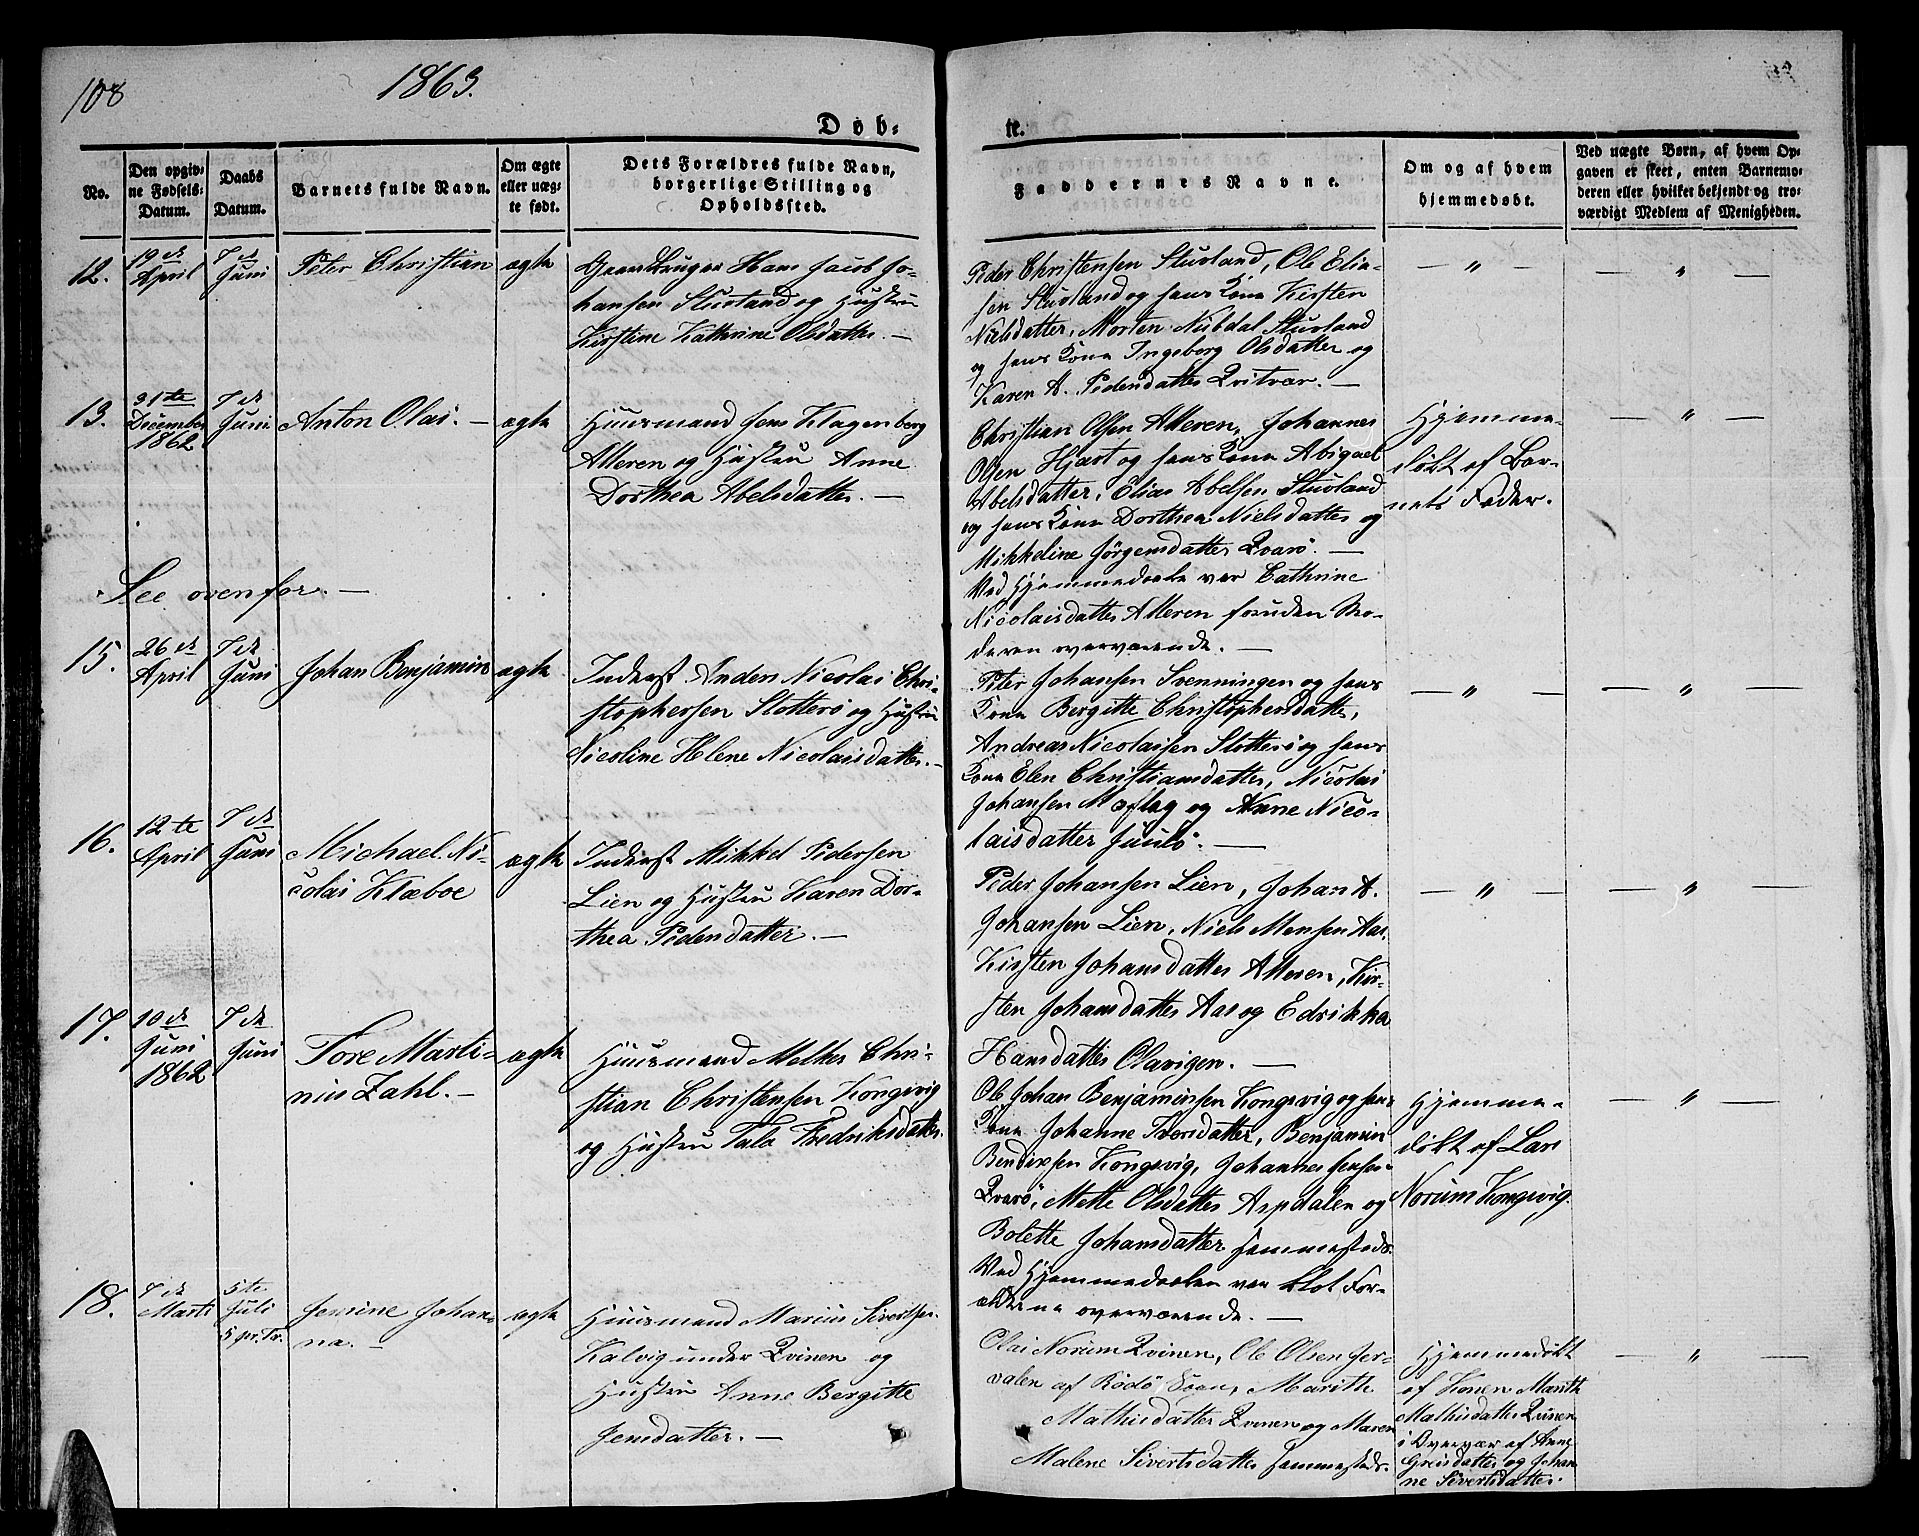 108
1863.
Døb-
te.
No.
Den opgiv-
ne Fødsels-
Datum.
Daabs
Datum.
Barnets fulde Navn.
Om ægte
eller uæg-
te født.
Dets Forældres fulde Navn,
borgerlige Stilling og
Opholdssted.
Faddernes Navne.
Om og af hvem
hjemmedøbt.
Ved uægte Børn, af hvem Op-
gaven er skeet, enten Barnemo-
deren eller hvilket bekjendt og tro-
værdigt Medlem af Menigheden.
12.
19de
April
7de
Juni
Peter Christian
ægte
Gaardbruger Hans Jacob Jo-
hansen Stuvland og Hustru
Kirstine Kathrine Olsdatter. —
Peder Christensen Stuvland, Ole Elia-
sen Stuvland og hans Kone Kirsten
Nielsdatter, Morten Nubdal Stuvland
og hans Kone Ingeborg Olsdatter og
Karen A. Pedersdatter Qvitvær. —
— " —
— " —
13.
31te
December
1862
7de
Juni
Anton Olai. —
ægte
Huusmand Jens Klagenberg
Alteren og Hustru Anne
Dorthea Abelsdatter. —
Christian Olsen Alteren, Johannes
Olsen Hjart og hans Kone Abigael
Abelsdatter, Elias Abelsen Stuvland
og hans Kone Dorthea Nielsdatter og
Mikkeline Jørgensdatter Qvarø. —
Ved Hjemmedaaben var Cathrine
Nicolaisdatter Alteren foruden Mo-
deren overværende. —
Hjemme-
døbt af Bar-
nets Fader.
— " —
See ovenfor. —
15.
26de
April
7de
Juni
Johan Benjamin
ægte
Inderst Anders Nicolai Chri-
stophersen Slotterø og Hustru
Nicoline Helene Nicolaisdatter. —
Peter Johansen Svenningen og hans
Kone Bergitte Christophersdatter,
Andreas Nicolaisen Slotterø og hans
Kone Elen Christiansdatter, Nicolai
Johansen Moflag og Anne Nico-
laisdatter . —
— " —
— " —
16.
12te
April
7de
Juni
Michael Ni-
colai Klæboe
ægte
Inderst Mikkel Pedersen
Lien og Hustru Karen Dor-
thea Pedersdatter. —
Peder Johansen Lien, Johan A.
Johansen Lien, Niels Monsen Aas,
Kirsten Johansdatter Alteren, Kir-
sten Johansdatter Aas og Edrikka
Hansdatter Olavigen. —
— " —
— " —
17.
10de
Juni
1862
7de
Juni
Tore Marti-
nus Zahl. —
ægte
Huusmand Melker Chri-
stian Christensen Kongsvig
og Hustru Tale Fredriksdatter.
Ole Johan Benjaminsen Kongsvig og hans
Kone Johanne Toresdatter, Benjamin
Bendixsen Kongsvig, Johannes Jensen
Qvarø, Mette Olsdatter Aspdalen og
Bolette Johansdatter sammesteds.
Ved Hjemmedaaben var blot For-
ældrene overværende. —
Hjemme-
døbt af Lars
Norum Kongsvig.
— " —
18.
7de
Marts
5te
Juli
5 p. Tr.
Jensine Johan-
na. —
ægte
Huusmand Marius Sivertsen
Kalvig under Qvinen og
Hustru Anne Bergitte
Jensdatter. —
Olai Norum Qvinen, Ole Olsen Jer-
valen af Rødø Sogn, Marith
Mathisdatter Qvinen og Maren
Malene Sivertsdatter sammesteds.
Hjemmedøbt
af Konen Marith
Mathisdatter Qvinen
i Overvær af Anne
Greisdatter og Johan-
ne Sivertsdatter.
— " —